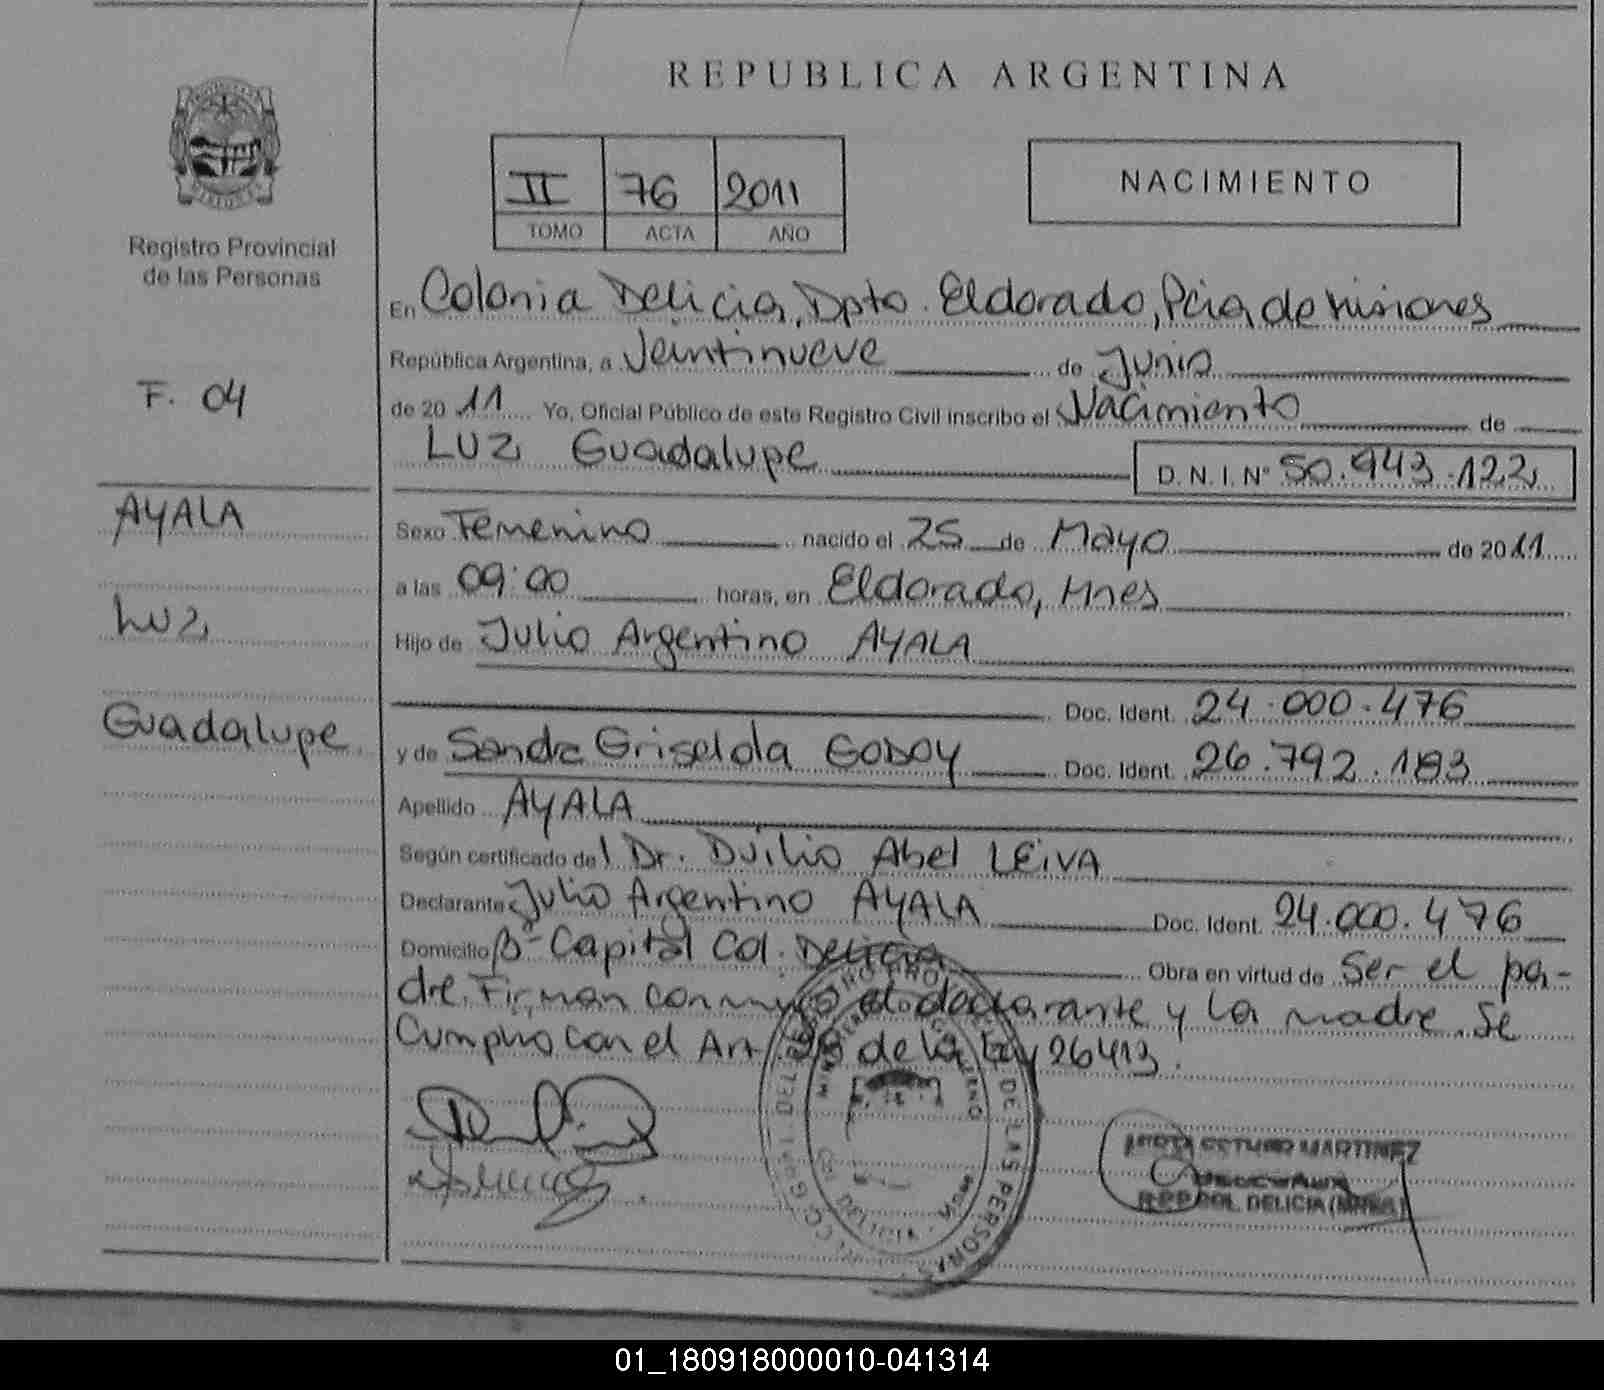 REPUBLICA ARGENTINA
II 76 2011
TOMO ACTA AÑO
NACIMIENTO
Registro Provincial
de las Personas
F. 04
AYALA
Luz
Guadalupe
En Colonia Delicia, Dpto. Eldorado, Pcia, de Misiones
República Argentina, a Veintinueve de Junio
de 20 11 Yo, Oficial Público de este Registro Civil inscribo el Nacimiento de
LUZ Guadalupe D.N.I. Nº 50.943.122
Sexo Femenino nacido el 25 de Mayo de 20 11
a las 09:00 horas, en Eldorado, Mnes
Hijo de Julio Argentino AYALA
Doc. Ident. 24.000.476
y de Sandra Griselda GODOY Doc. Ident. 26.792.183
Apellido AYALA
Según certificado del Dr. Duilio Abel LEIVA
Declarante Julio Argentino AYALA Doc. Ident. 24.000.476
Domicilio Bº Capital Col. Delicia Obra en virtud de Ser el pa-
dre. Firman conmigo el declarante y la madre. Se
Cumplio con el Art. de la Ley 26413.
DE LAS PERSONAS
MARTINEZ
R.P.P. COL. DELICIA (MNES)
01_180918000010-041314